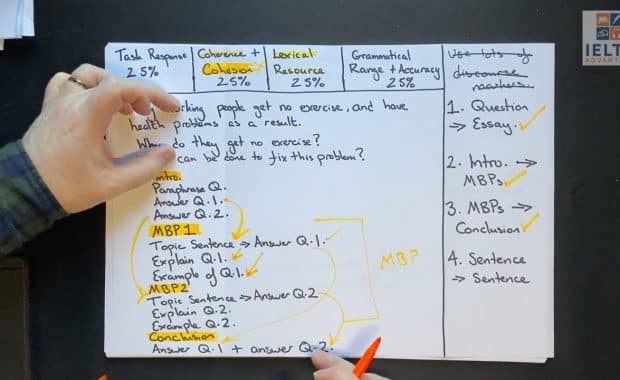 Task Response
25%
Coherence +
Cohesion
25%
Lexical
Resource
25%
Grammatical
Range + Accuracy
25%
people get no exercise, and have
health problems as a result.
do they get no exercise?
can be done to fix this problem?
Intro.
Paraphrase Q.
Answer Q.1.
Answer Q.2.
MBP1
Topic Sentence → Answer Q.1.
Explain Q.1.
Example of Q.1.
MBP2
Topic Sentence → Answer Q.2
Explain Q.2.
Example Q.2.
Conclusion
Answer Q.1 + answer Q.2.
MBP
Use lots of
discourse
markers.
1. Question
→ Essay.
2. Intro. →
MBPs
3. MBPs →
Conclusion
4. Sentence
→ Sentence
IELT
ADVANTA